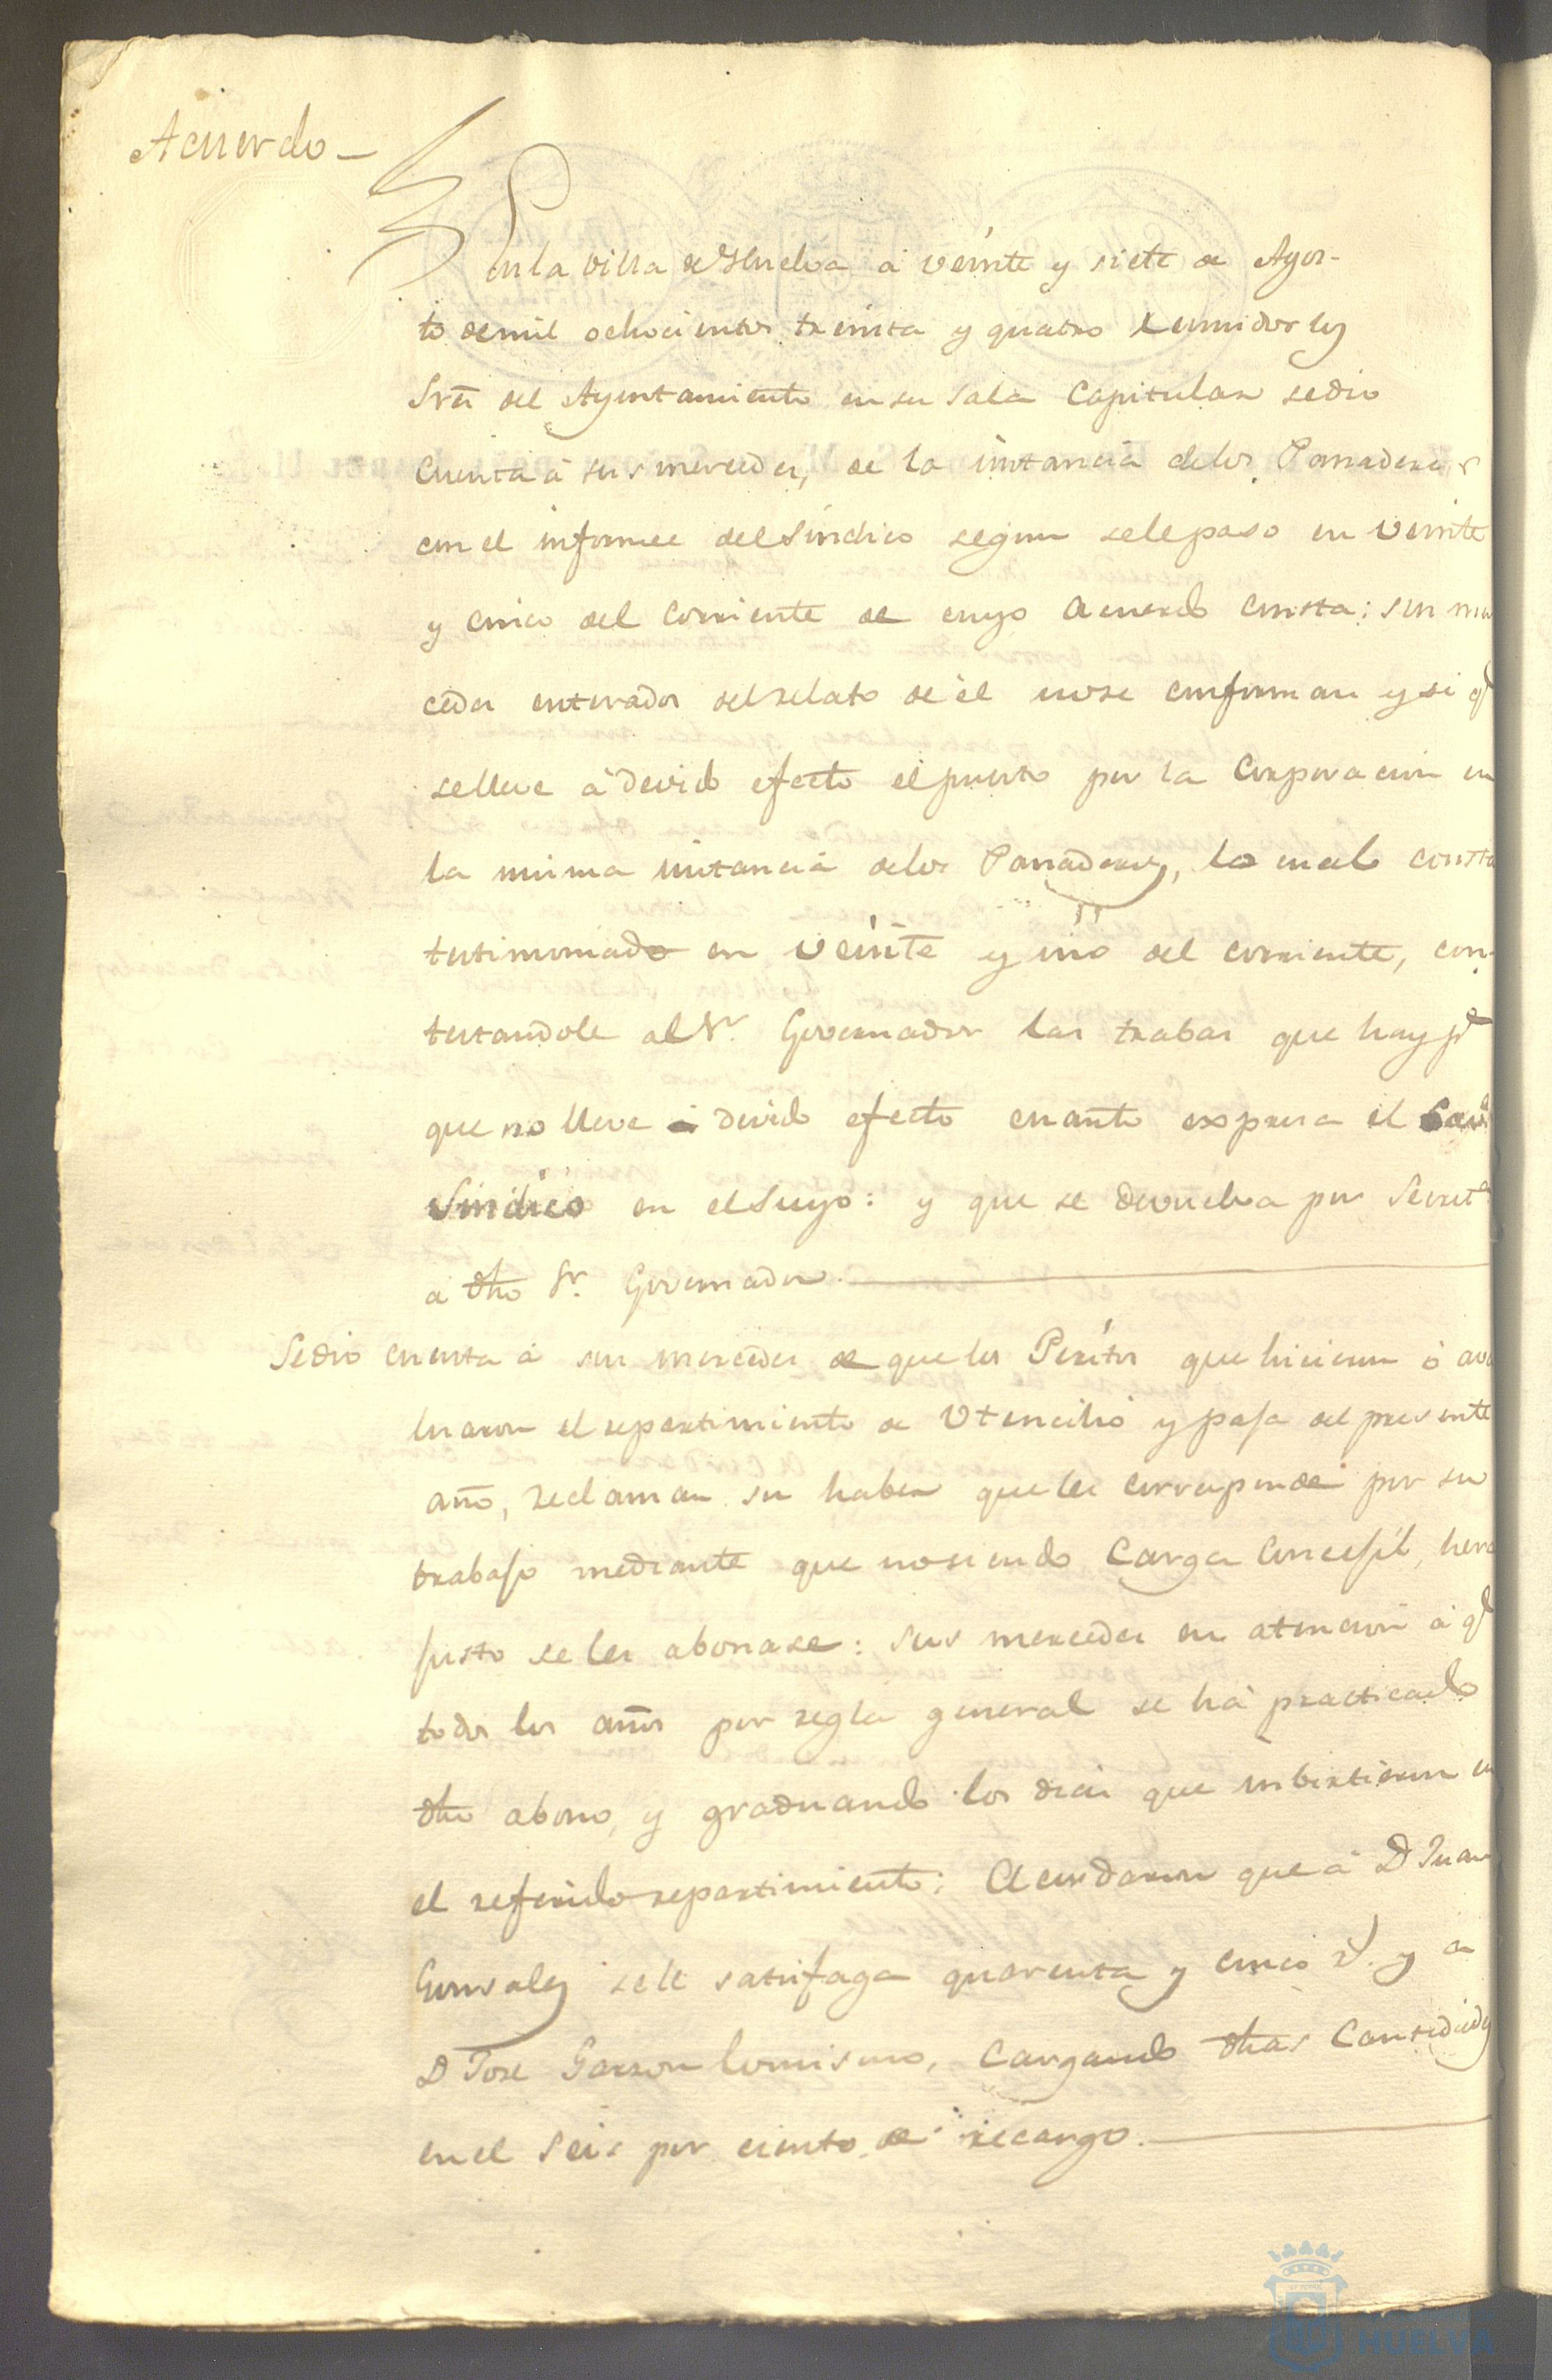 Acuerdo_
En la villa de Huelva á veinte y siete de Agos-
to de mil ochocientos treinta y quatro reunidos los
Sres del Ayuntamiento en su sala Capitular se dio
cuenta á sus mercedes, de la instancia de los Panaderos
con el informe del Sindico segun se le paso en veinte
y cinco del corriente de cuyo acuerdo consta: sus mer
cedes enterados del relato de él no se conforman y si qe
se lleve á devido efecto el puesto por la Corporacion en
la misma instancia de los Panaderos, lo cual consta
testimoniado en veinte y uno del corriente, con-
testandole al Sr. Governador las trabas que hay pa
que no lleve á devido efecto cuanto expresa el
Sindico en el suyo: y que se devuelva por Secreta
á dho Sr. Governador.
Se dio cuenta á sus mercedes de que los Peritos que hicieron óava
luaron el repartimiento de Utencilio y paja del presente
año, reclaman su haber que les corresponde por su
trabajo mediante que no siendo Carga Concejil, hera
justo se les abonase: sus mercedes en atencion á qe
todos los años por regla general se há practicado
dho abono, y graduando los dias que imbirtieron en
el referido repartimiento: Acordaron que á D Juan
Gonsales se le satisfaga quarenta y cinco rs. y a
D Jose Garzon lo mismo, cargando dhas Cantidades
en el seis por ciento de recargo.
HUELVA